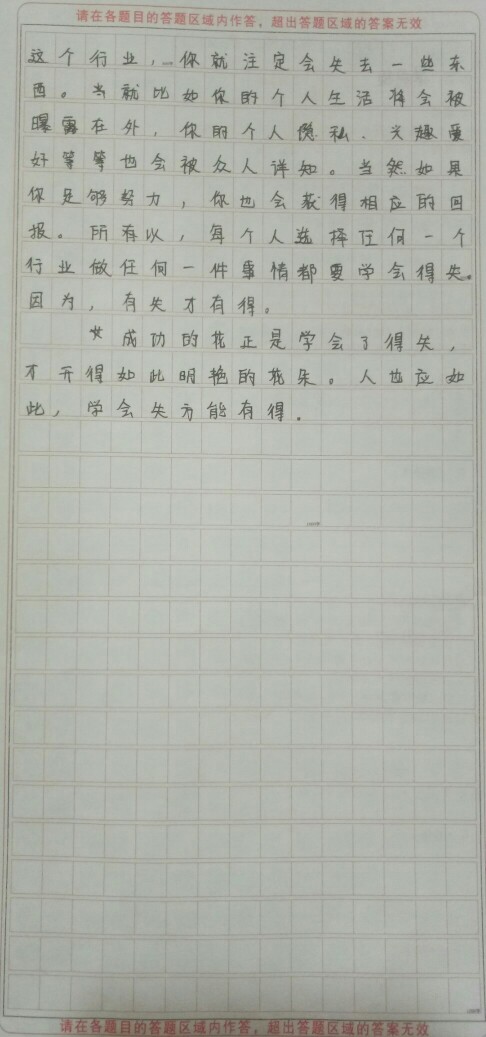 请在各题目的答题区域内作答，超出答题区域的答案无效
这个行业，你就注定会失去一些东
西。当就比如你的个人生活将会被
曝露在外，你的个人隐私、兴趣爱
好等等也会被众人详知。当然如果
你足够努力，你也会获得相应的回
报。所有以，每个人选择任何一个
行业做任何一件事情都要学会得失。
因为，有失才有得。
成功的花正是学会了得失，
才开得如此明艳的花朵。人也应如
此，学会失方能有得。
请在各题目的答题区域内作答，超出答题区域的答案无效